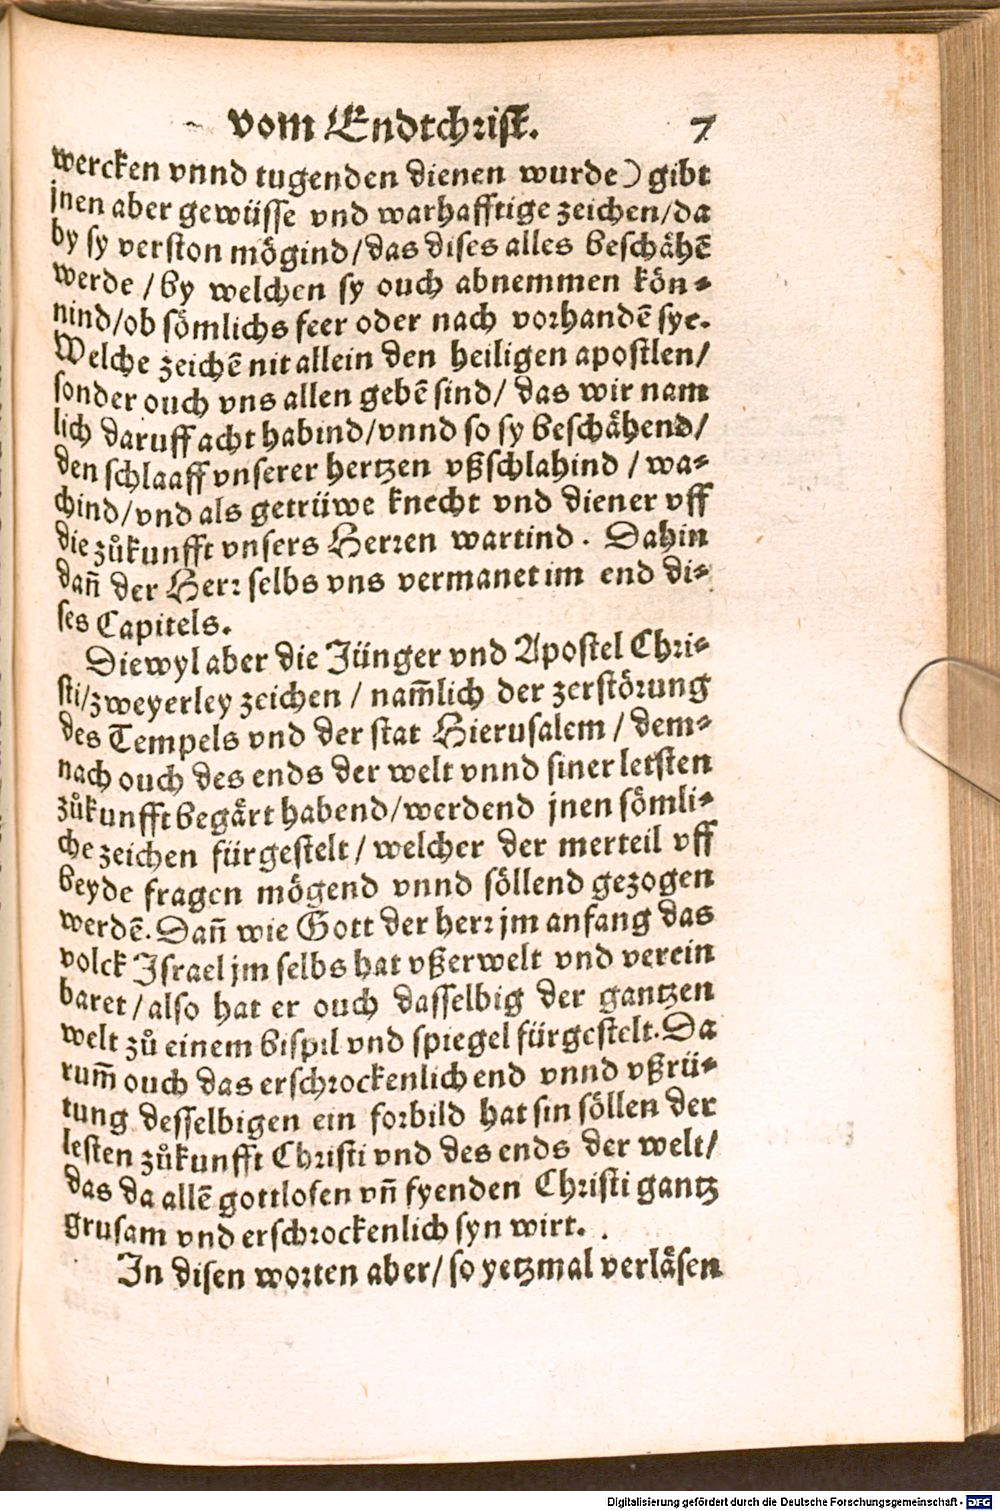 vom Endtchrist. 7
wercken vnnd tugenden dienen wurde) gibt
jnen aber gewüsse vnd warhafftige zeichen/da
by sy verston mögind/das dises alles beschähē
werde/by welchen sy ouch abnemmen kön⸗
nind/ob sömlichs feer oder nach vorhandē sye.
Welche zeichē nit allein den heiligen apostlen/
sonder ouch vns allen gebē sind/ das wir nam
lich daruff acht habind/vnnd so sy beschähend/
den schlaaff vnserer hertzen vßschlahind/wa⸗
chind/vnd als getrüwe knecht vnd diener vff
die zůkunfft vnsers Herren wartind. Dahin
dañ der Herr selbs vns vermanet im end di⸗
ses Capitels.
Diewyl aber die Jünger vnd Apostel Chri⸗
sti/zweyerley zeichen/ nam̄lich der zerstörung
des Tempels vnd der stat Hierusalem/ dem⸗
nach ouch des ends der welt vnnd siner letsten
zůkunfft begärt habend/werdend jnen sömli⸗
che zeichen fürgestelt/welcher der merteil vff
beyde fragen mögend vnnd söllend gezogen
werdē. Dañ wie Gott der herr jm anfang das
volck Israel jm selbs hat vßerwelt vnd verein
baret/also hat er ouch dasselbig der gantzen
welt zů einem bispil vnd spiegel fürgestelt. Da
rum̄ ouch das erschrockenlich end vnnd vßrü⸗
tung desselbigen ein forbild hat sin söllen der
lesten zůkunfft Christi vnd des ends der welt/
das da allē gottlosen vñ fyenden Christi gantz
grusam vnd erschrockenlich syn wirt.
In disen worten aber/so yetzmal verläsen
Digitalisierung gefördert durch die Deutsche Forschungsgemeinschaft - DFG